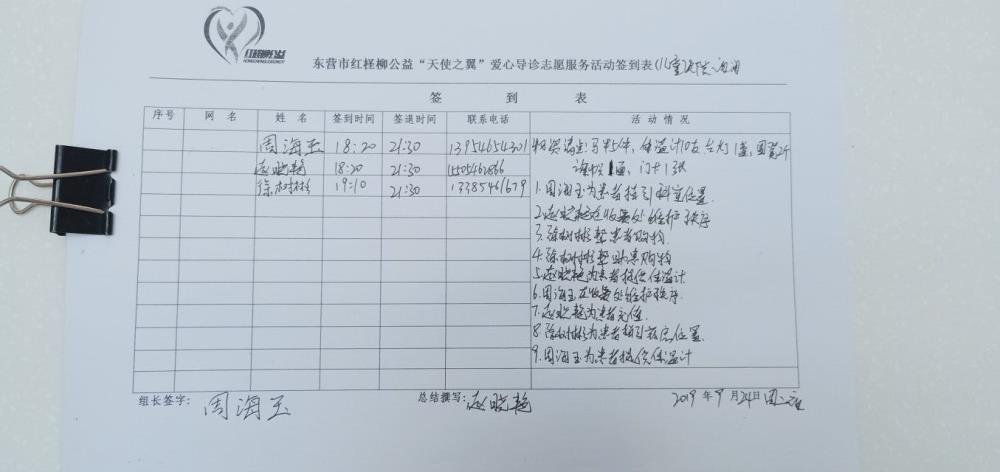 红柽柳公益
HONGCHENGLIUGONGYI
东营市红柽柳公益“天使之翼”爱心导诊志愿服务活动签到表(儿童
签 到 表
序号 网 名 姓 名 签到时间 签退时间 联系电话 活 动 情 况
周海玉 18:20 21:30 13954654301 马甲5件,体温计10支 台灯1盏,
赵晓艳 18:20 21:30 门卡1张
徐树彬 19:10 21:30 13385461679 1.周海玉为患者指引科室位置
2.赵晓艳在收费处维护秩序
3.徐树彬帮患者购物
4.徐树彬帮助患购物
5.赵晓艳为患者提供体温计
6.周海玉在收费处维护秩序.
7.赵晓艳为患者充值.
8.徐树彬为患者指引药房位置.
9.周海玉为患者提供体温计
组长签字: 周海玉 总结撰写: 赵晓艳 2019 年 9 月 24日 周二